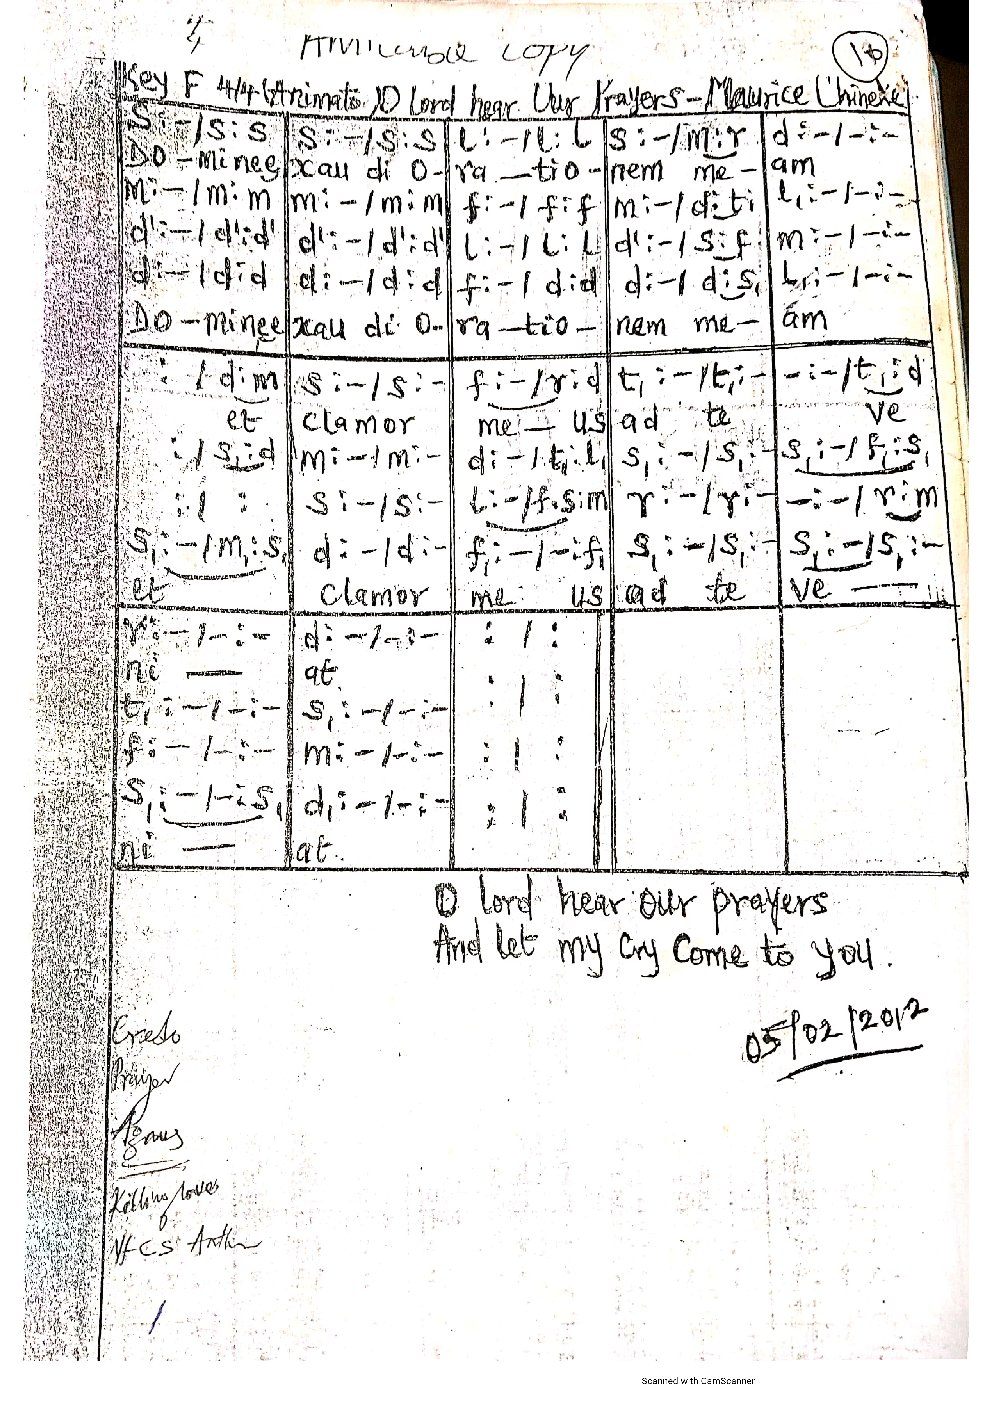 copy
10
Key F 4/4 (Animato) O Lord hear Our Prayers - Maurice Chinexe
S:-/S:S S:-/S:S l:-/l:l S:-/m:r d:-/-:-
DO-minee xau di O- ra-tio- nem me- am
m:-/m:m m:-/m:m f:-/f:f m:-/d:ti l₁:-/-:-
d':-/d':d' d':-/d':d' l:-/l:l d':-/S:f m:-/-:-
d:-/d:d d:-/d:d f:-/d:d d:-/d:S₁ l₁:-/-:-
DO-minee xau di O- ra-tio- nem me- am
: /d:m S:-/S:- f:-/r:d t₁:-/t₁:- -:-/t₁:d
et clamor me-us ad te ve
: /S₁:d m:-/m:- d:-/t₁:l₁ S₁:-/S₁:- S₁:-/f₁:S₁
:/ : S:-/S:- l:-/f.S:m r:-/r:- -:-/r:m
S₁:-/m₁:S₁ d:-/d:- f₁:-/-:f₁ S₁:-/S₁:- S₁:-/S₁:-
et clamor me us ad te ve —
r:-/-:- d:-/-:- : / :
ni — at
: / :
t₁:-/-:- S₁:-/-:-
f:-/-:- m:-/-:- : / :
S₁:-/-:S₁ d₁:-/-:- : / :
ni — at.
O lord hear our prayers
And let my cry come to you.
05/02/2012
Credo
Prayer
Agnus
Killing loves
Scanned with CamScanner